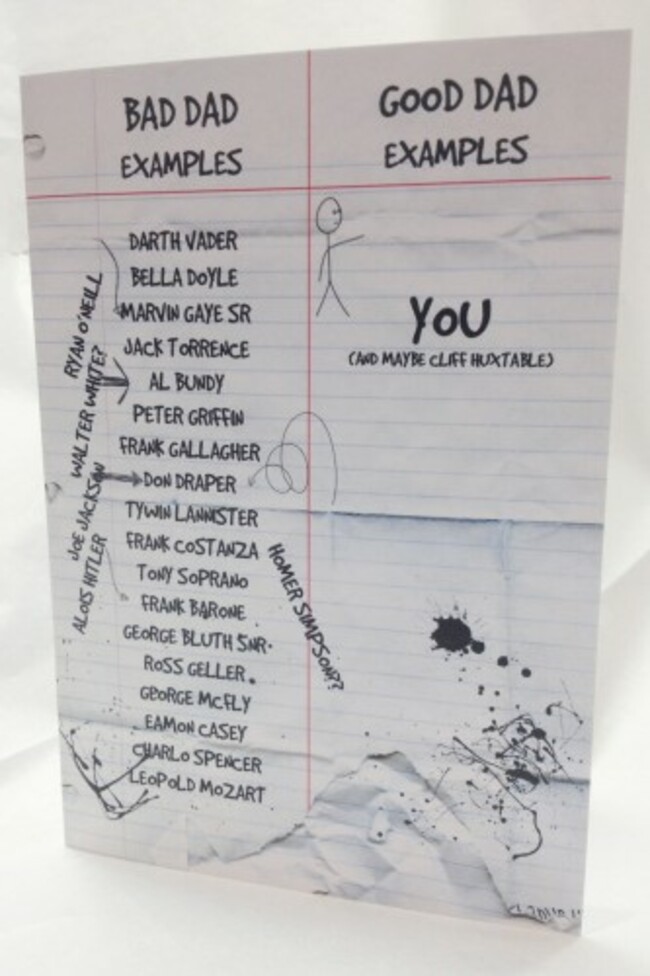 BAD DAD
EXAMPLES
DARTH VADER
BELLA DOYLE
MARVIN GAYE SR
JACK TORRENCE
AL BUNDY
PETER GRIFFIN
FRANK GALLAGHER
DON DRAPER
TYWIN LANNISTER
FRANK COSTANZA
TONY SOPRANO
FRANK BARONE
GEORGE BLUTH SNR.
ROSS GELLER
GEORGE MCFLY
EAMON CASEY
CHARLO SPENCER
LEOPOLD MOZART
RYAN O'NEILL
WALTER WHITE?
JOE JACKSON
ALOIS HITLER
HOMER SIMPSON??
GOOD DAD
EXAMPLES
YOU
(AND MAYBE CLIFF HUXTABLE)